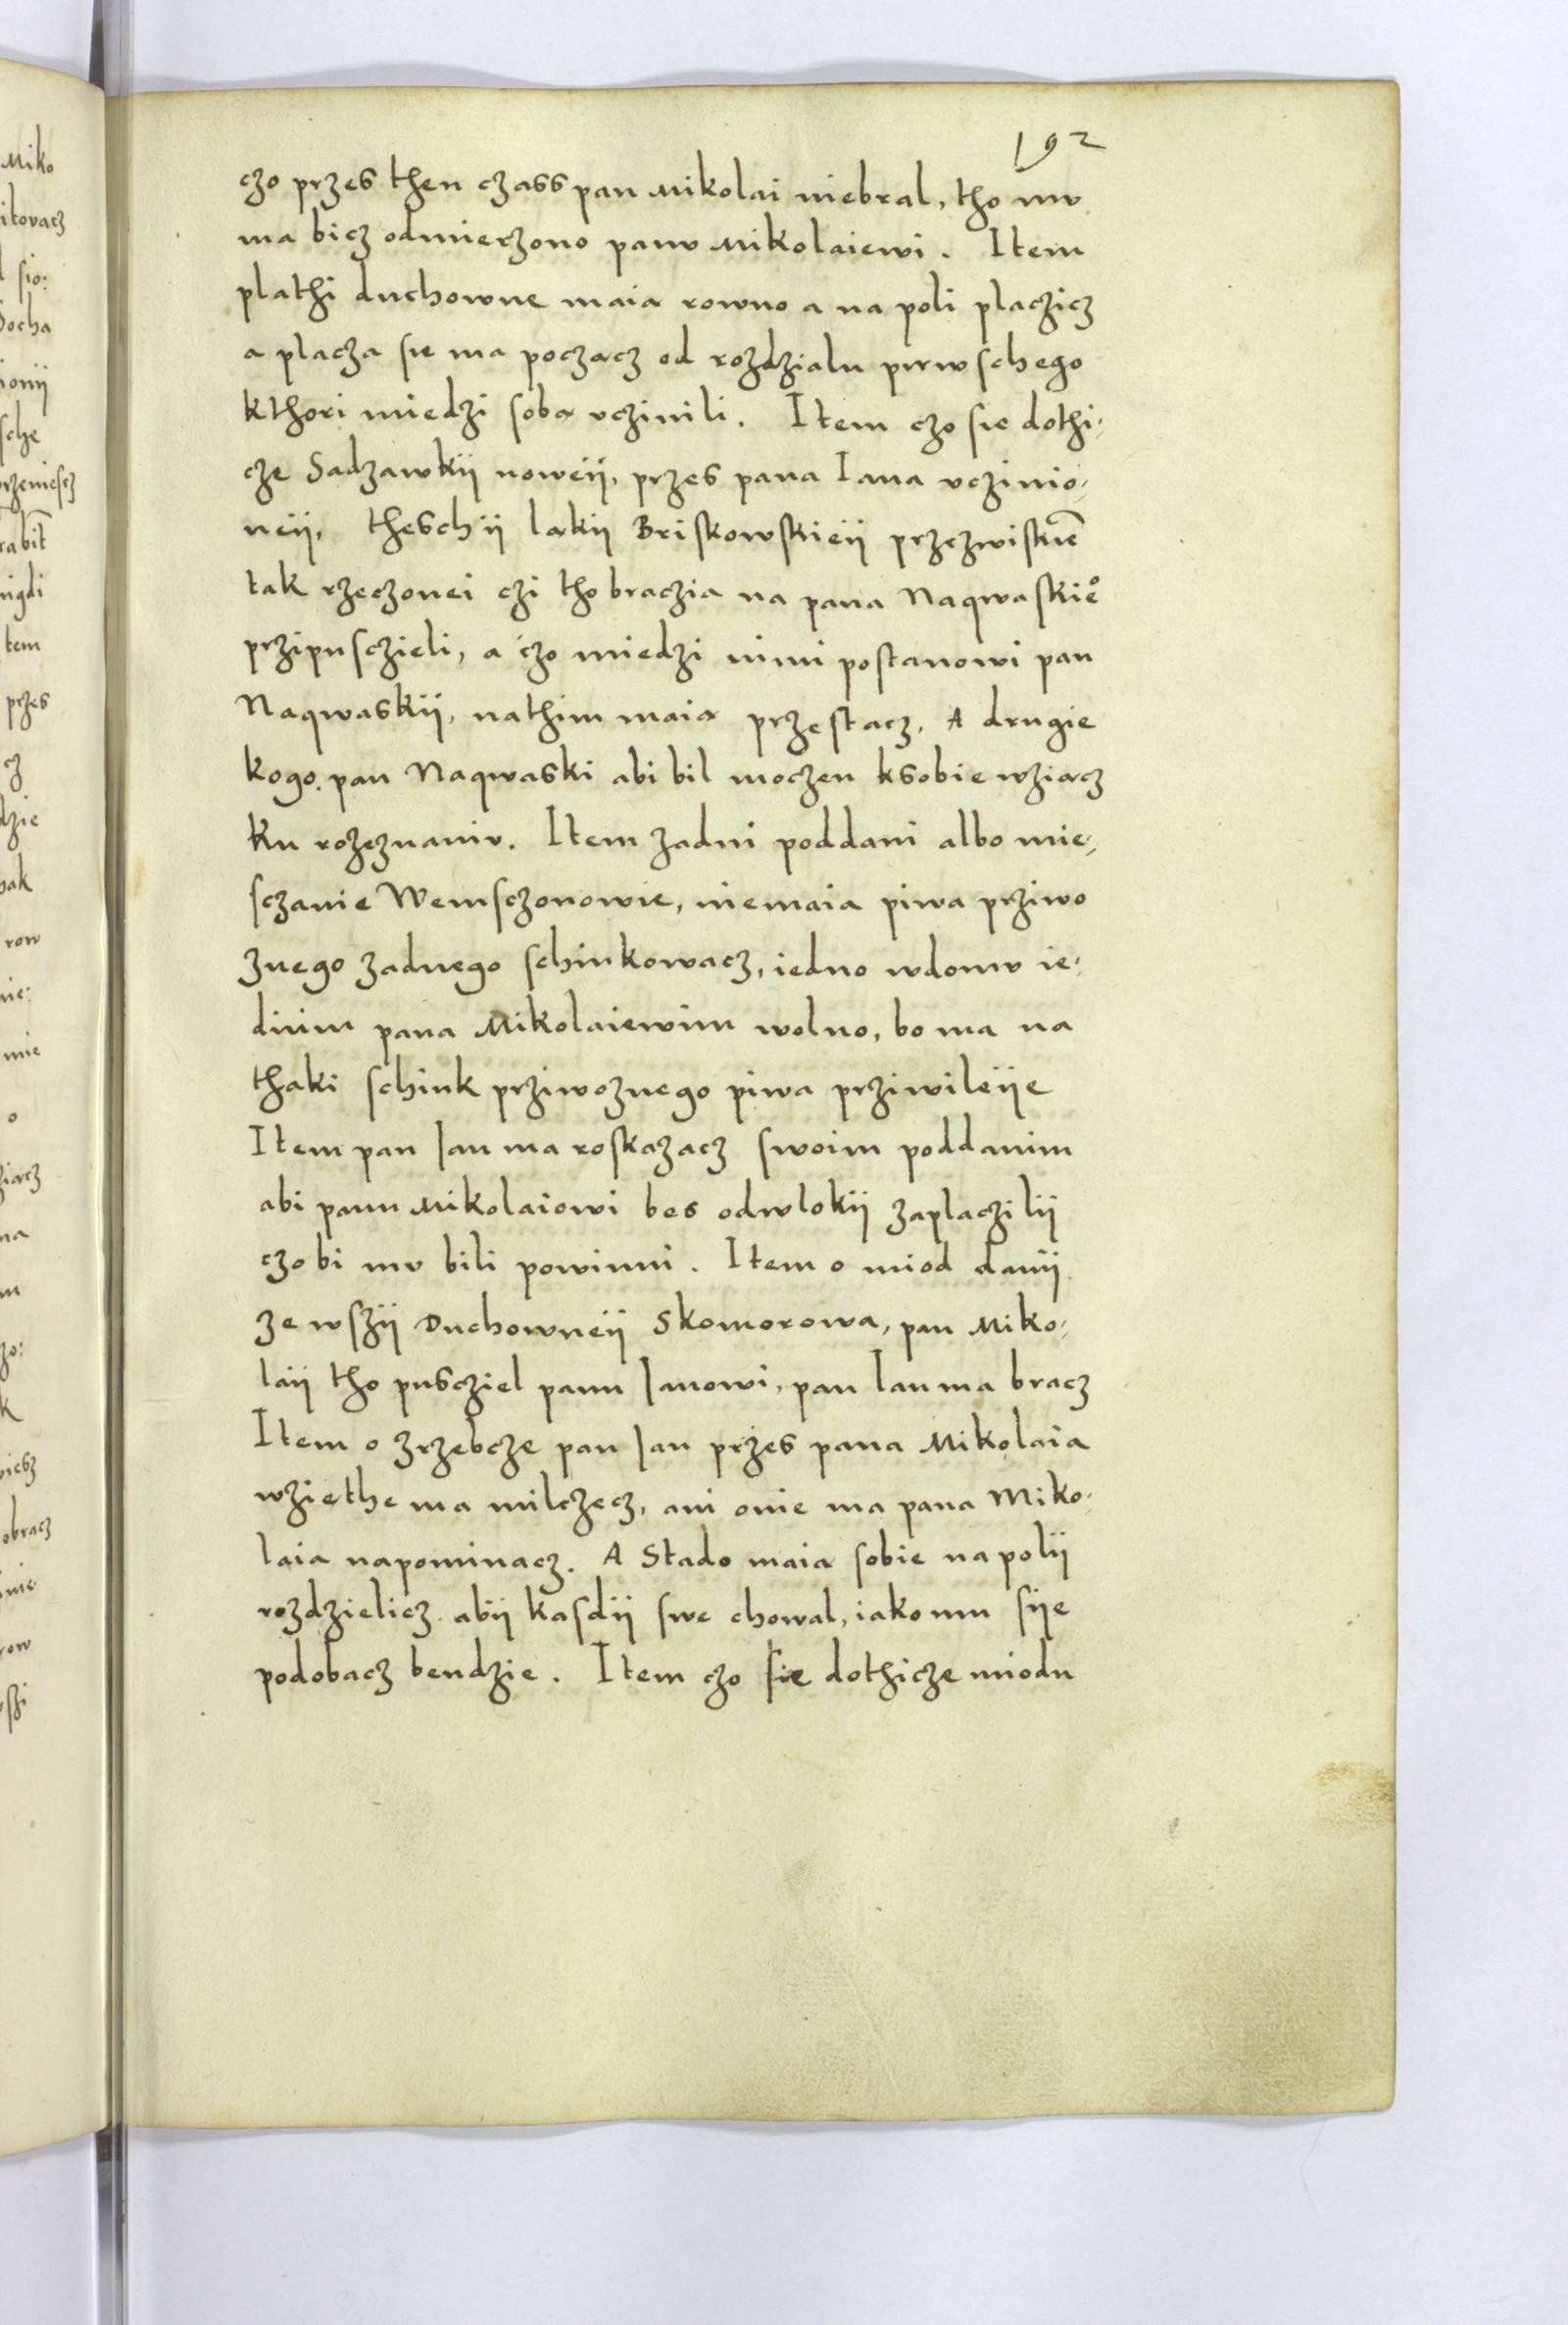 192
czo przes then czass pan Mikolai niebral, tho mv
ma bicz odmierzono panv Mikolaiewi. Item
plathi duchowne maia rowno a na poli placzicz
a placza sie ma poczacz od rozdzialu pirwschego
kthori miedzi soba vczinili. Item czo sie dothi-
cze Sadzawkij noweij, przes pana Iana vczinio-
neij, theschij lakij Briskowskieij przezwiskiē
tak rzeczonei czi tho braczia na pana Naqwaskie°
przipusczieli, a czo miedzi nimi postanowi pan
Naqwaskij, nathim maia przestacz. A drugie
kogo pan Naqwaski abi bil moczen ksobie wziacz
ku rozeznaniv. Item zadni poddani albo mie-
sczanie Wemsczonowie, niemaia piwa przivo
znego zadnego schinkowacz, iedno wdomv ie-
dnim pana Mikolaiewim wolno, bo ma na
thaki schink przivoznego piwa przivileije
Item pan Jan ma roskazacz swoim poddanim
abi panu Mikolaiowi bes odwlokij zaplaczilij
czo bi mv bili powinni. Item o miod danij
ze wszij Duchowneij Skomorowa, pan Miko-
laij tho pusczieł panu Janowi, pan Ian ma bracz
Item o zrzebcze pan Jan przes pana Mikolaia
wziethe ma milczecz, ani onie ma pana Miko-
laia napominacz. A Stado maia sobie napolij
rozdzielicz abij kasdij swe chowal, iako mu sije
podobacz bendzie. Item czo sie dothicze miodu